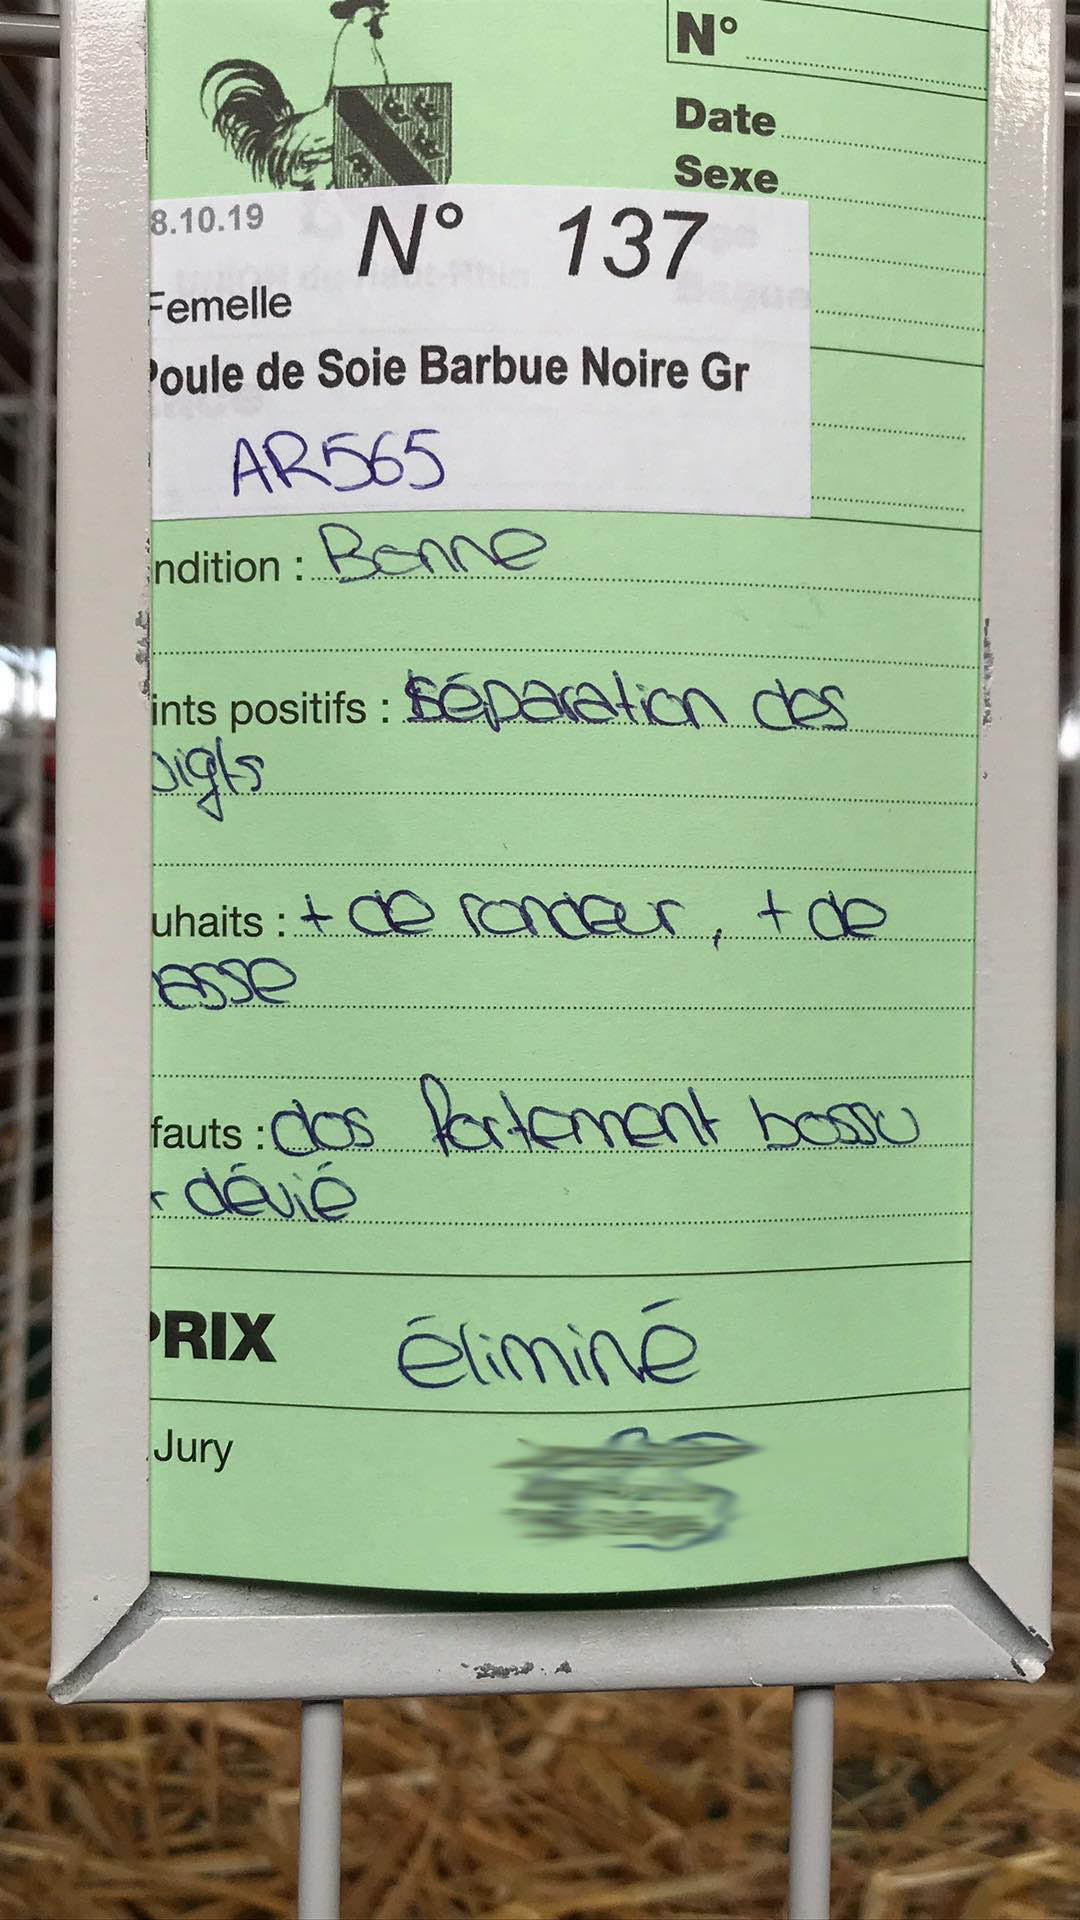 N°
Date
Sexe
8.10.19
N° 137
Femelle
Poule de Soie Barbue Noire Gr
AR565
ndition : Bonne
ints positifs : Séparation des
oigts
uhaits : + de rondeur, + de
masse
fauts : dos fortement bossu
+ dévié
PRIX éliminé
Jury